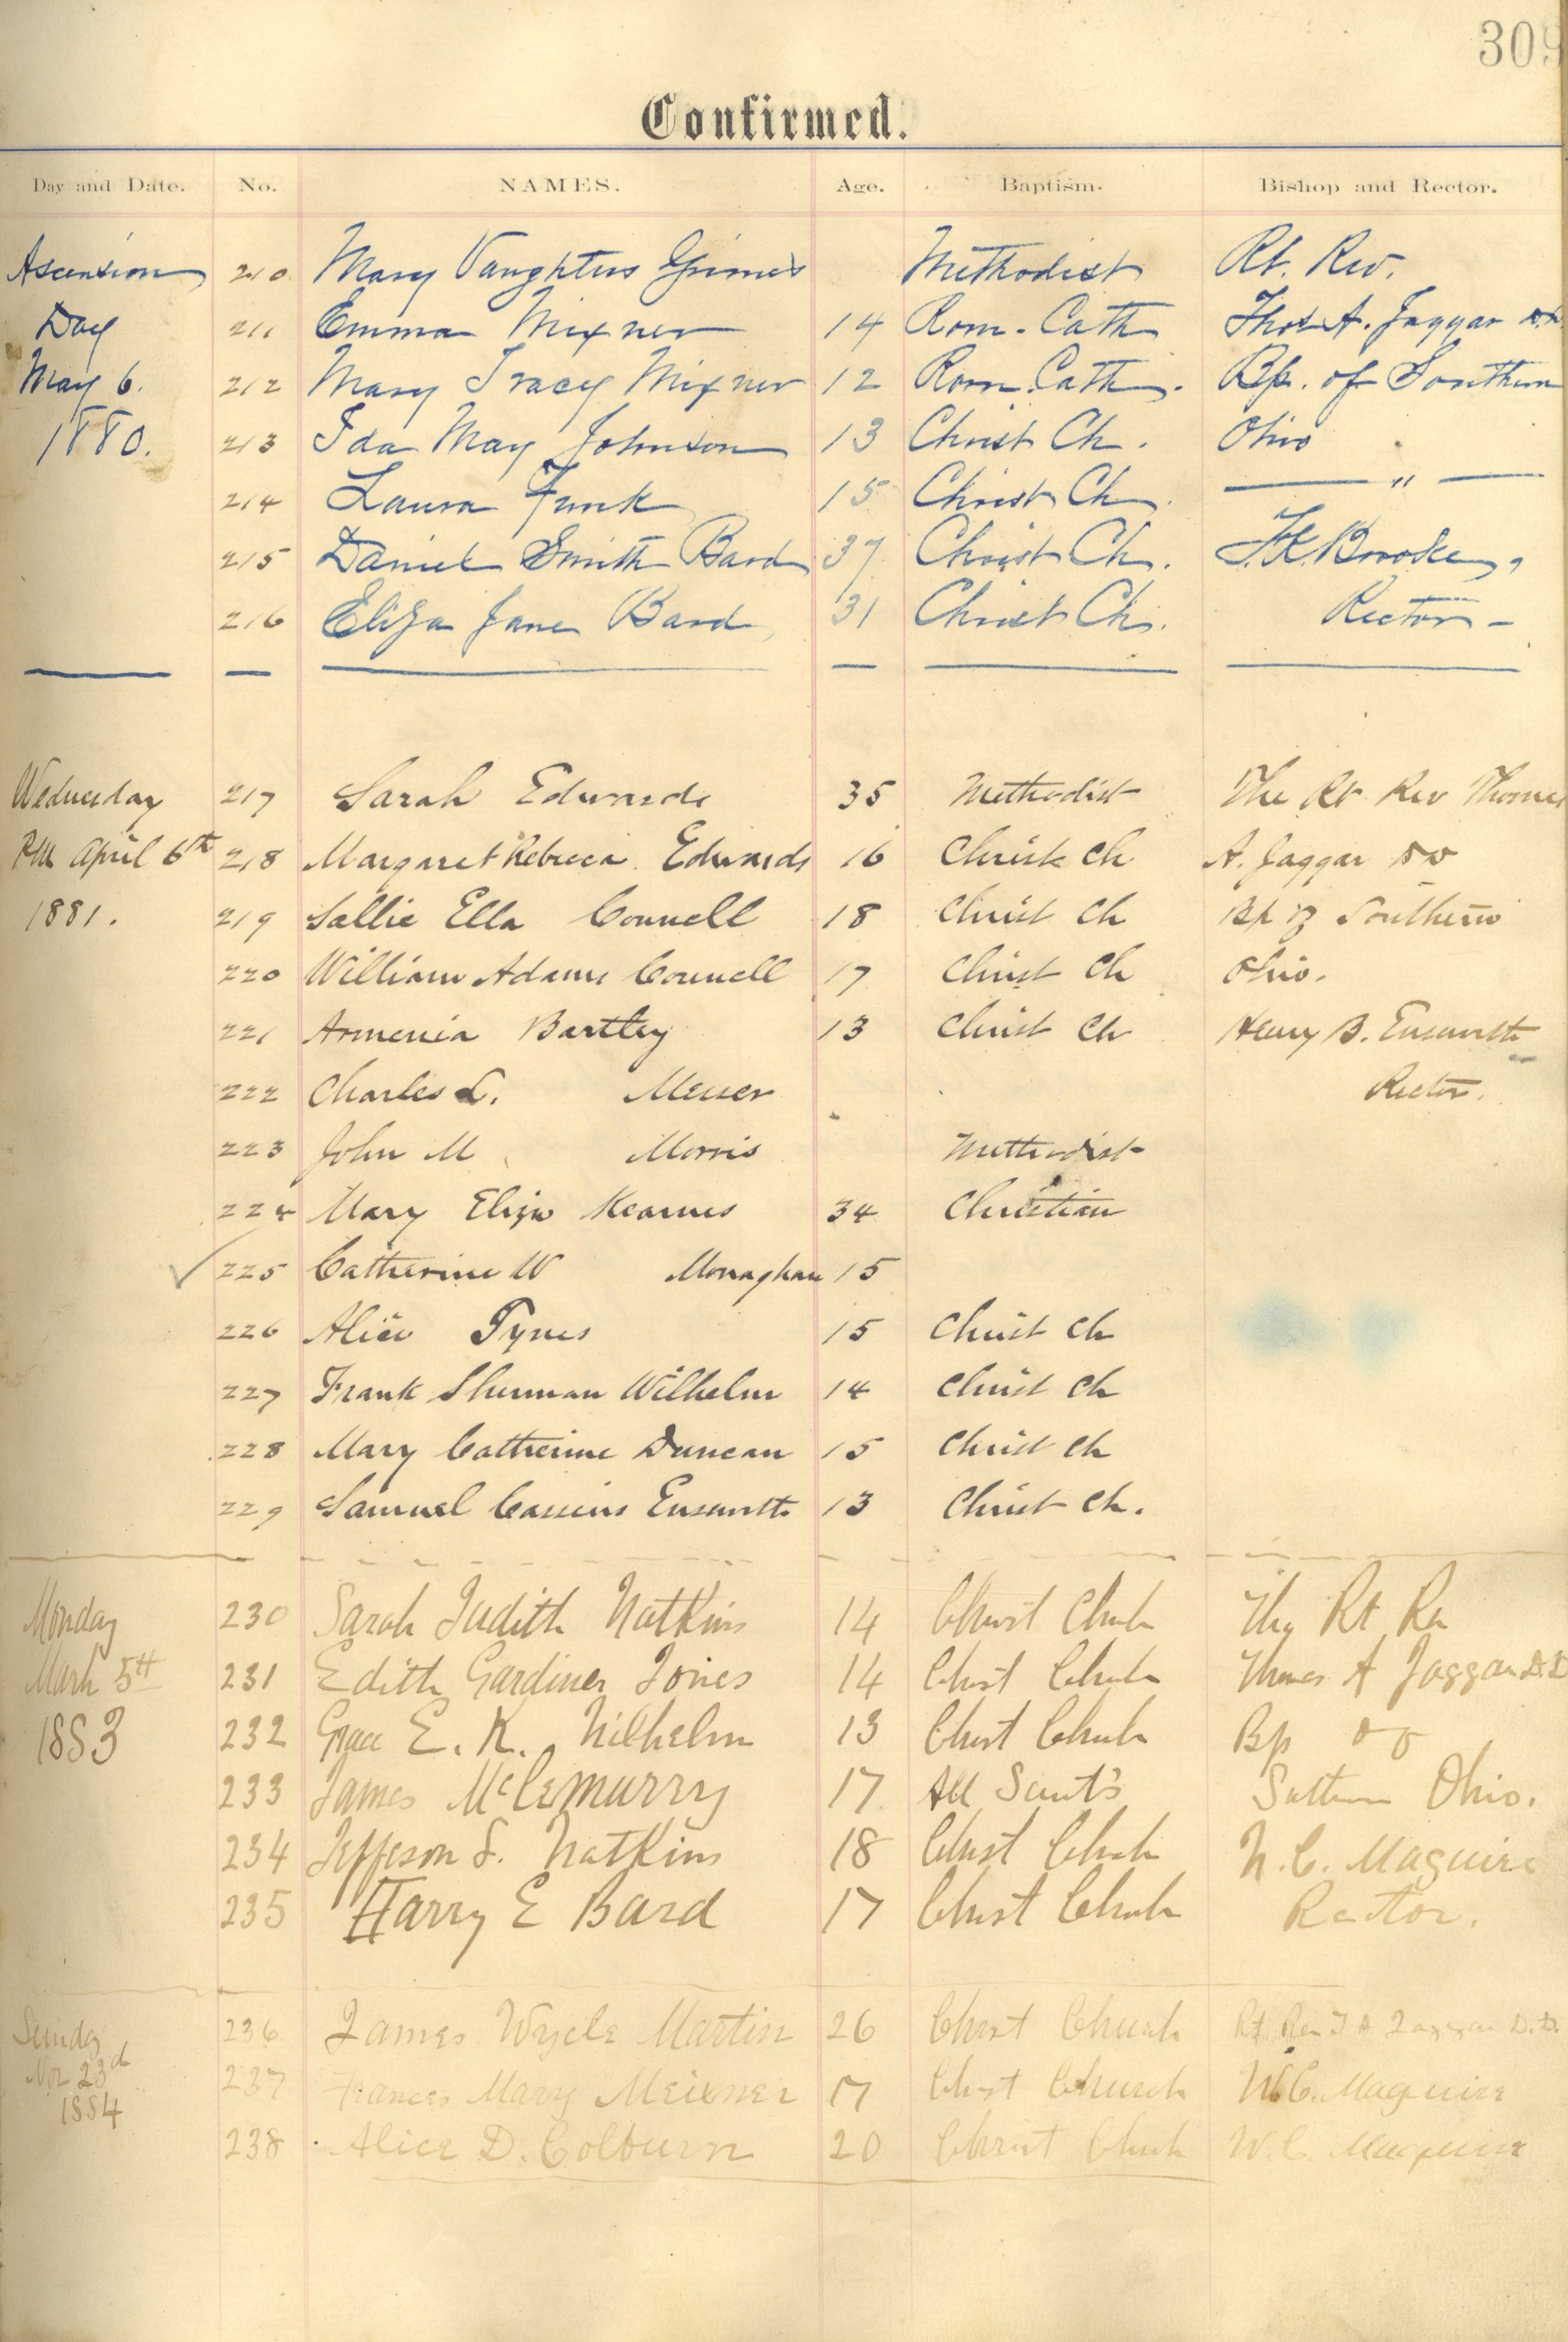 309
Confirmed.
Day and Date. No. NAMES. Age. Baptism. Bishop and Rector.
Ascension 210 Mary Grimes Methodist Rt. Rev.
Day 211 Emma Mixner 14 Rom. Cath Thos A. Jaggar DD
May 6. 212 Mary Tracy Mixner 12 Rom. Cath. Bp. of Southern
1880. 213 Ida May Johnson 13 Christ Ch. Ohio
214 Laura Funk 15 Christ Ch. — " —
215 Daniel Smith Bard 37 Christ Ch. F.K. Brooke,
216 Eliza Jane Bard 31 Christ Ch. Rector –
Wednesday 217 Sarah Edwards 35 Methodist The Rt Rev Thomas
PM April 6th 218 Margaret Rebecca Edwards 16 Christ Ch A. Jaggar DD
1881. 219 Sallie Ella Connell 18 Christ Ch Bp of Southern
220 William Adams Connell 17 Christ Ch Ohio.
221 Armenia Bartley 13 Christ Ch Henry B. Ensworth
222 Charles L. Messer Rector.
223 John M Morris Methodist
224 Mary Eliza Kearnes 34 Christian
225 Catherine W Monaghan 15
226 Alice Tynes 15 Christ Ch
227 Frank Sherman Wilhelm 14 Christ Ch
228 Mary Catherine Duncan 15 Christ Ch
229 Samuel Cassius Ensworth 13 Christ Ch.
Monday 230 Sarah Judith Watkins 14 Christ Chuch The Rt Re
March 5th 231 Edith Gardiner Jones 14 Christ Chuch Thomas A Jaggar D.D
1883 232 Grace E. K. Wilhelm 13 Christ Chuch Bp of
233 James McLemurry 17 All Saint's Southern Ohio.
234 Jefferson S. Watkins 18 Christ Chuch W. C. Maguire
235 Harry E Bard 17 Christ Chuch Rector.
Sunday 236 James Martin 26 Christ Church Rt. Rev T A Jaggar D.D.
Nov 23d 237 Frances Mary Meixner 17 Christ Church W.C. Maguire
1884 238 Alice D. Colburn 20 Christ Chuch W. C. Maguire